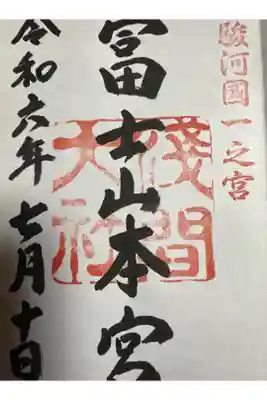 駿河國一之宮
冨士山本宮
淺間大社
令和六年七月十日